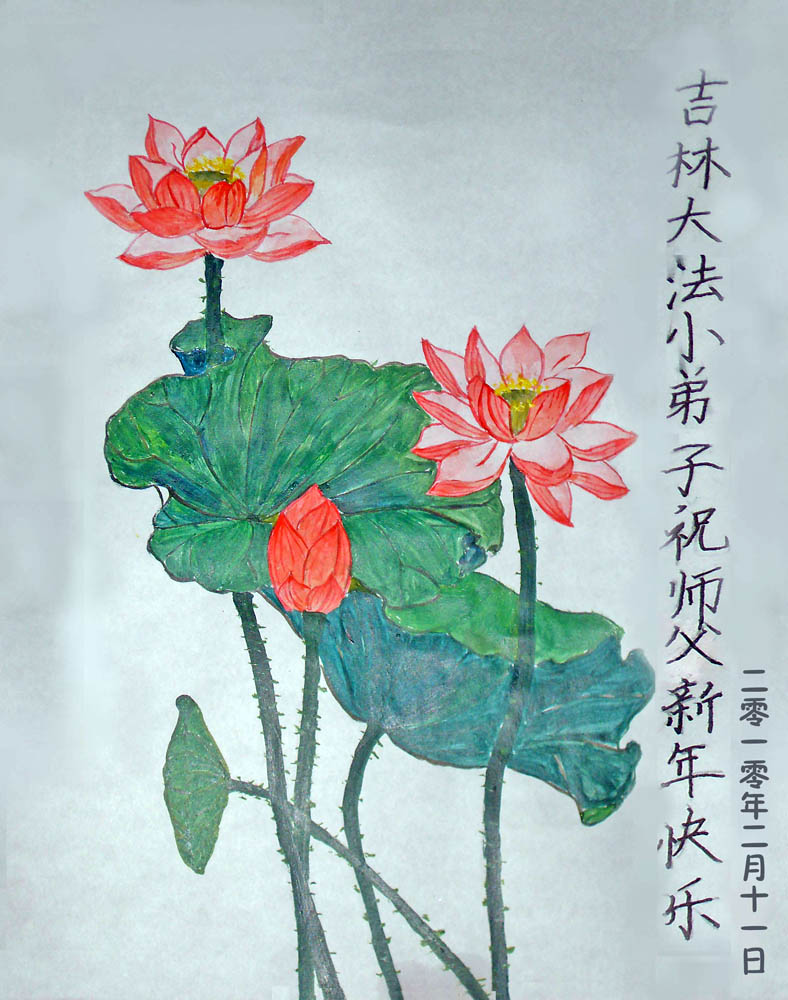 吉林大法小弟子祝师父新年快乐
二零一零年二月十一日